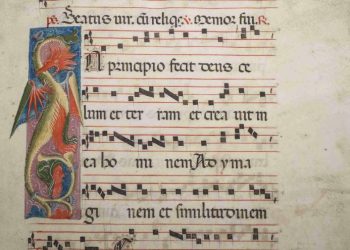 ps. Beatus uir. cū reliq̄. v. Memor fui. R.
In principio fecit deus ce
lum et ter ram et crea uit in
ea ho mi nem Ad yma
gi nem et similitudinem